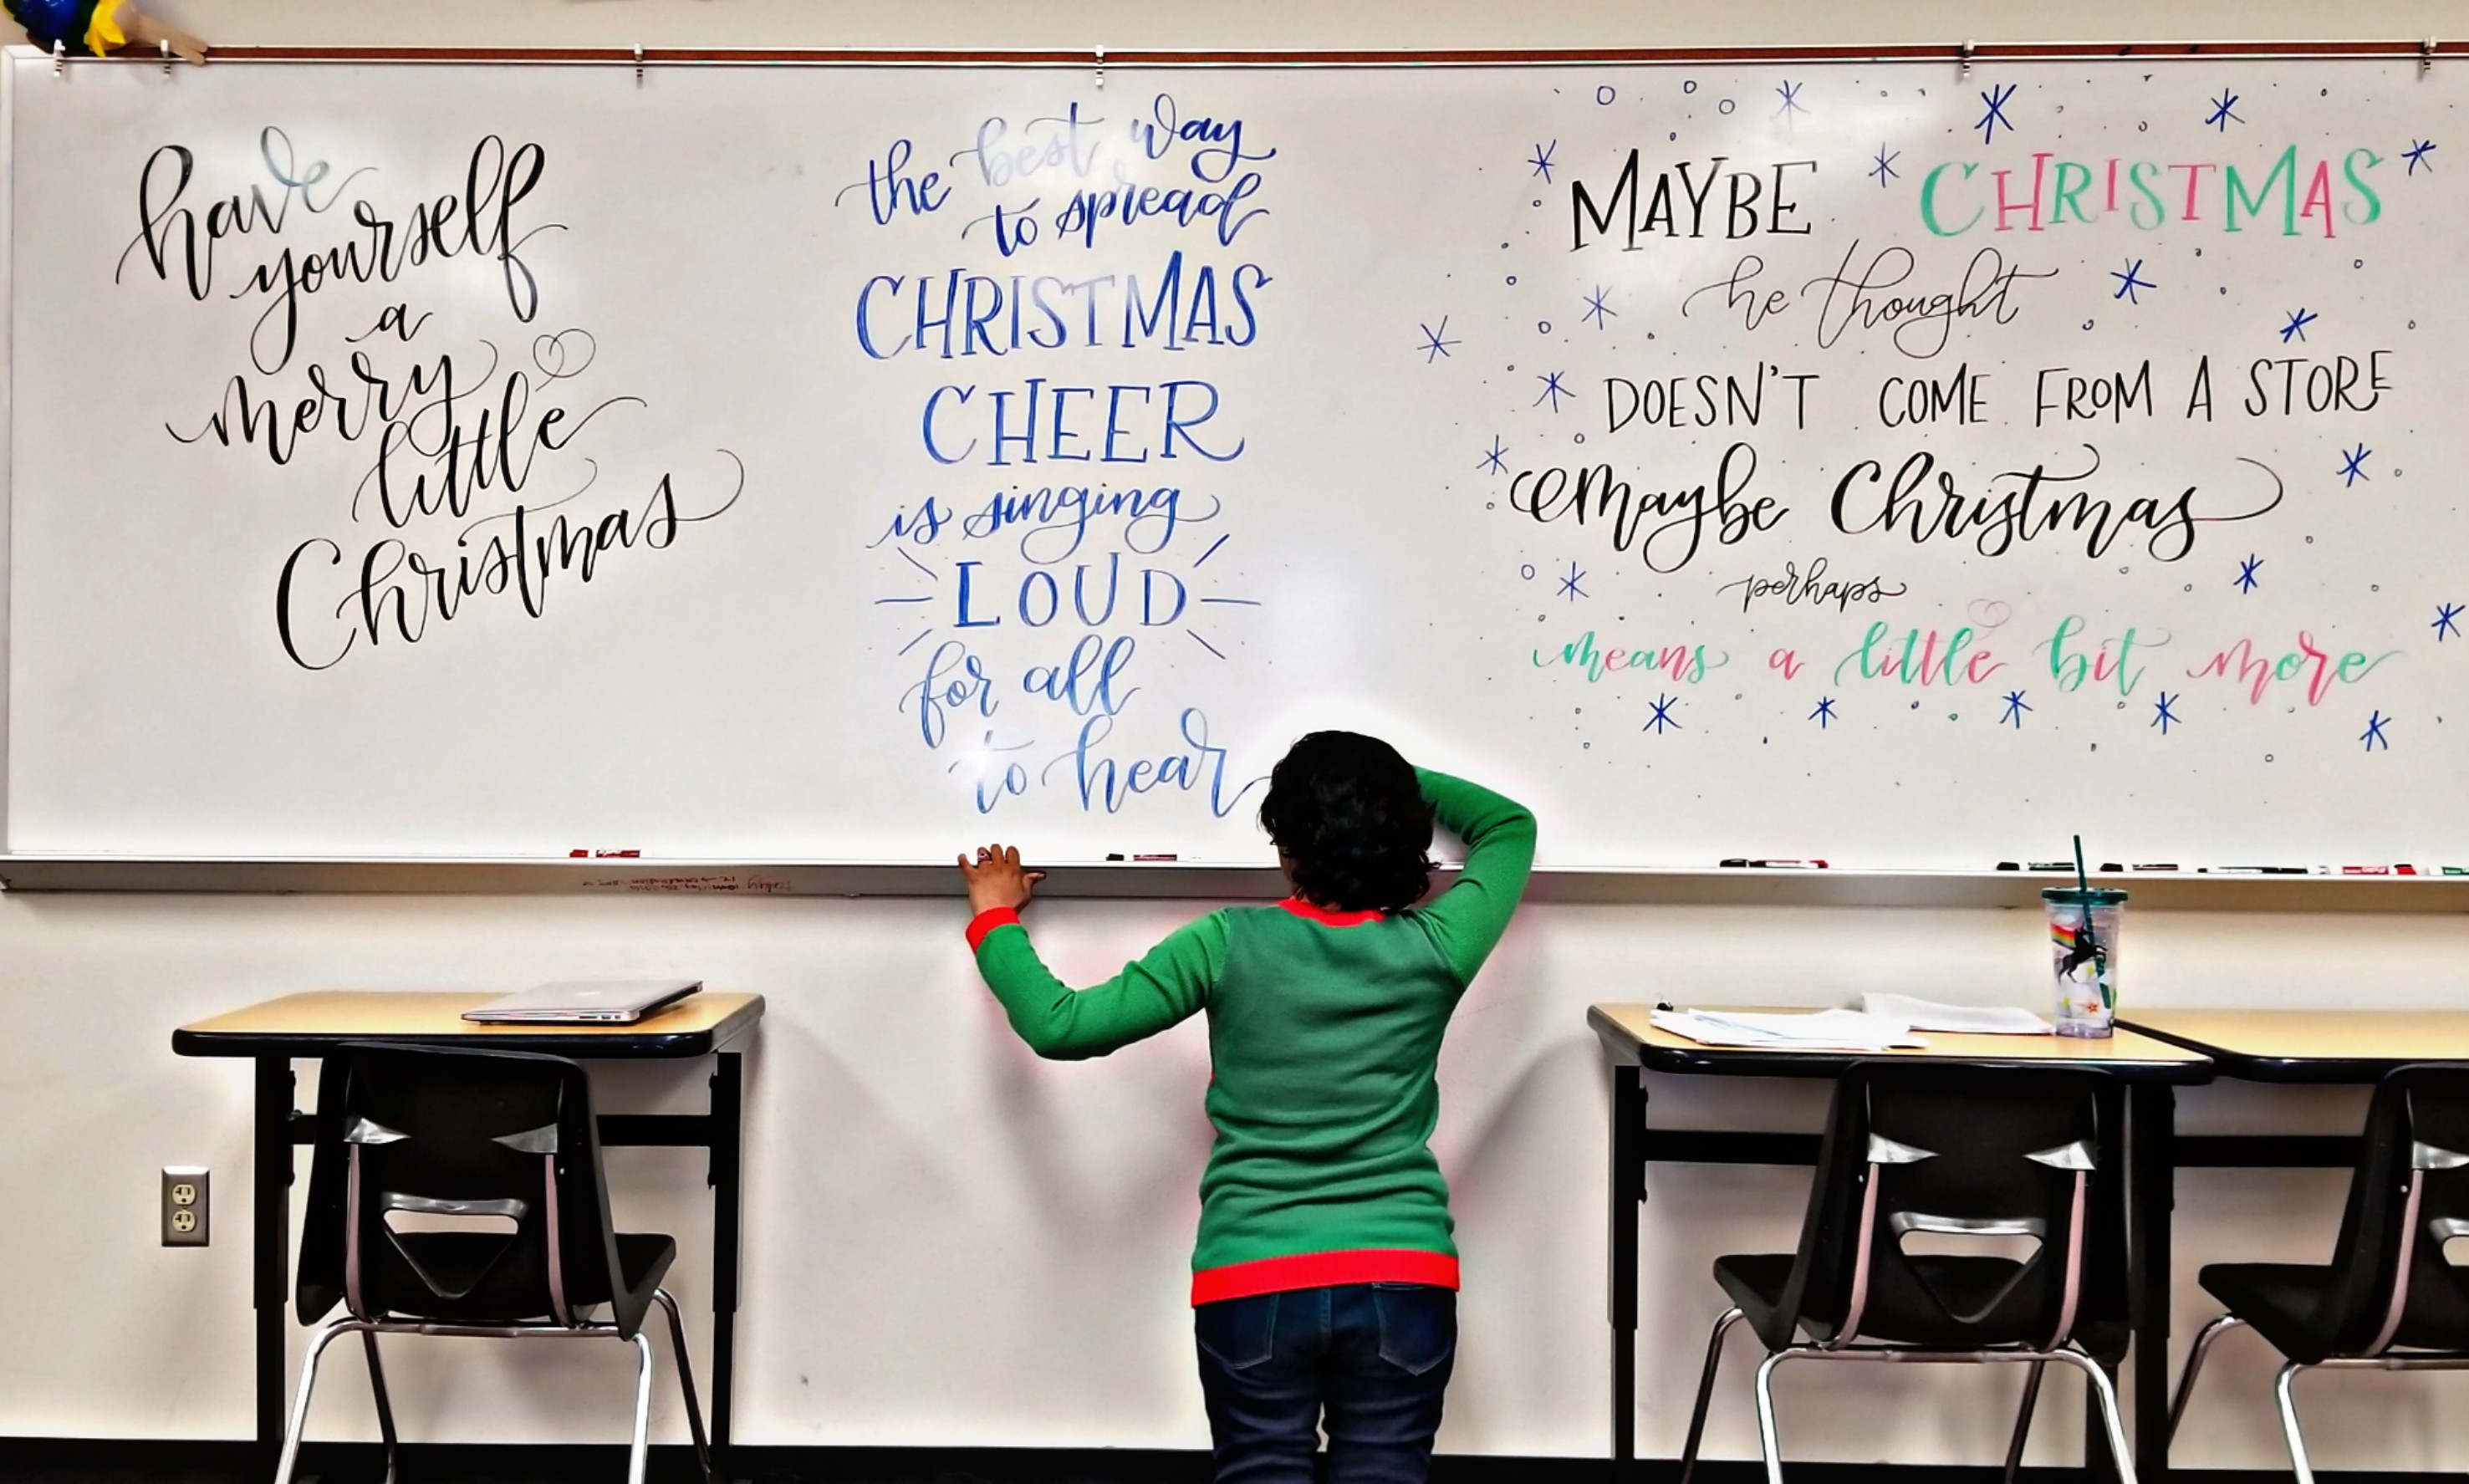 have
yourself
a
merry
little
Christmas
the best way
to spread
CHRISTMAS
CHEER
is singing
LOUD
for all
to hear
MAYBE CHRISTMAS
he thought
DOESN'T COME FROM A STORE
maybe Christmas
perhaps
means a little bit more